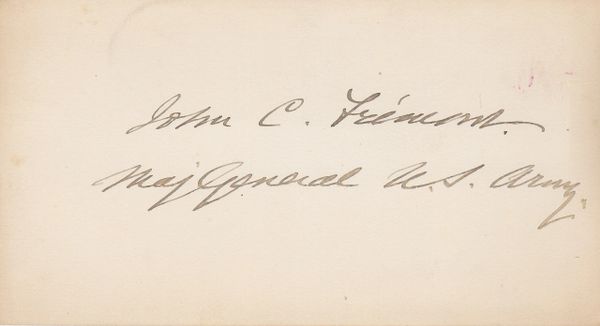 John C. Frémont.
Maj General U.S. Army.